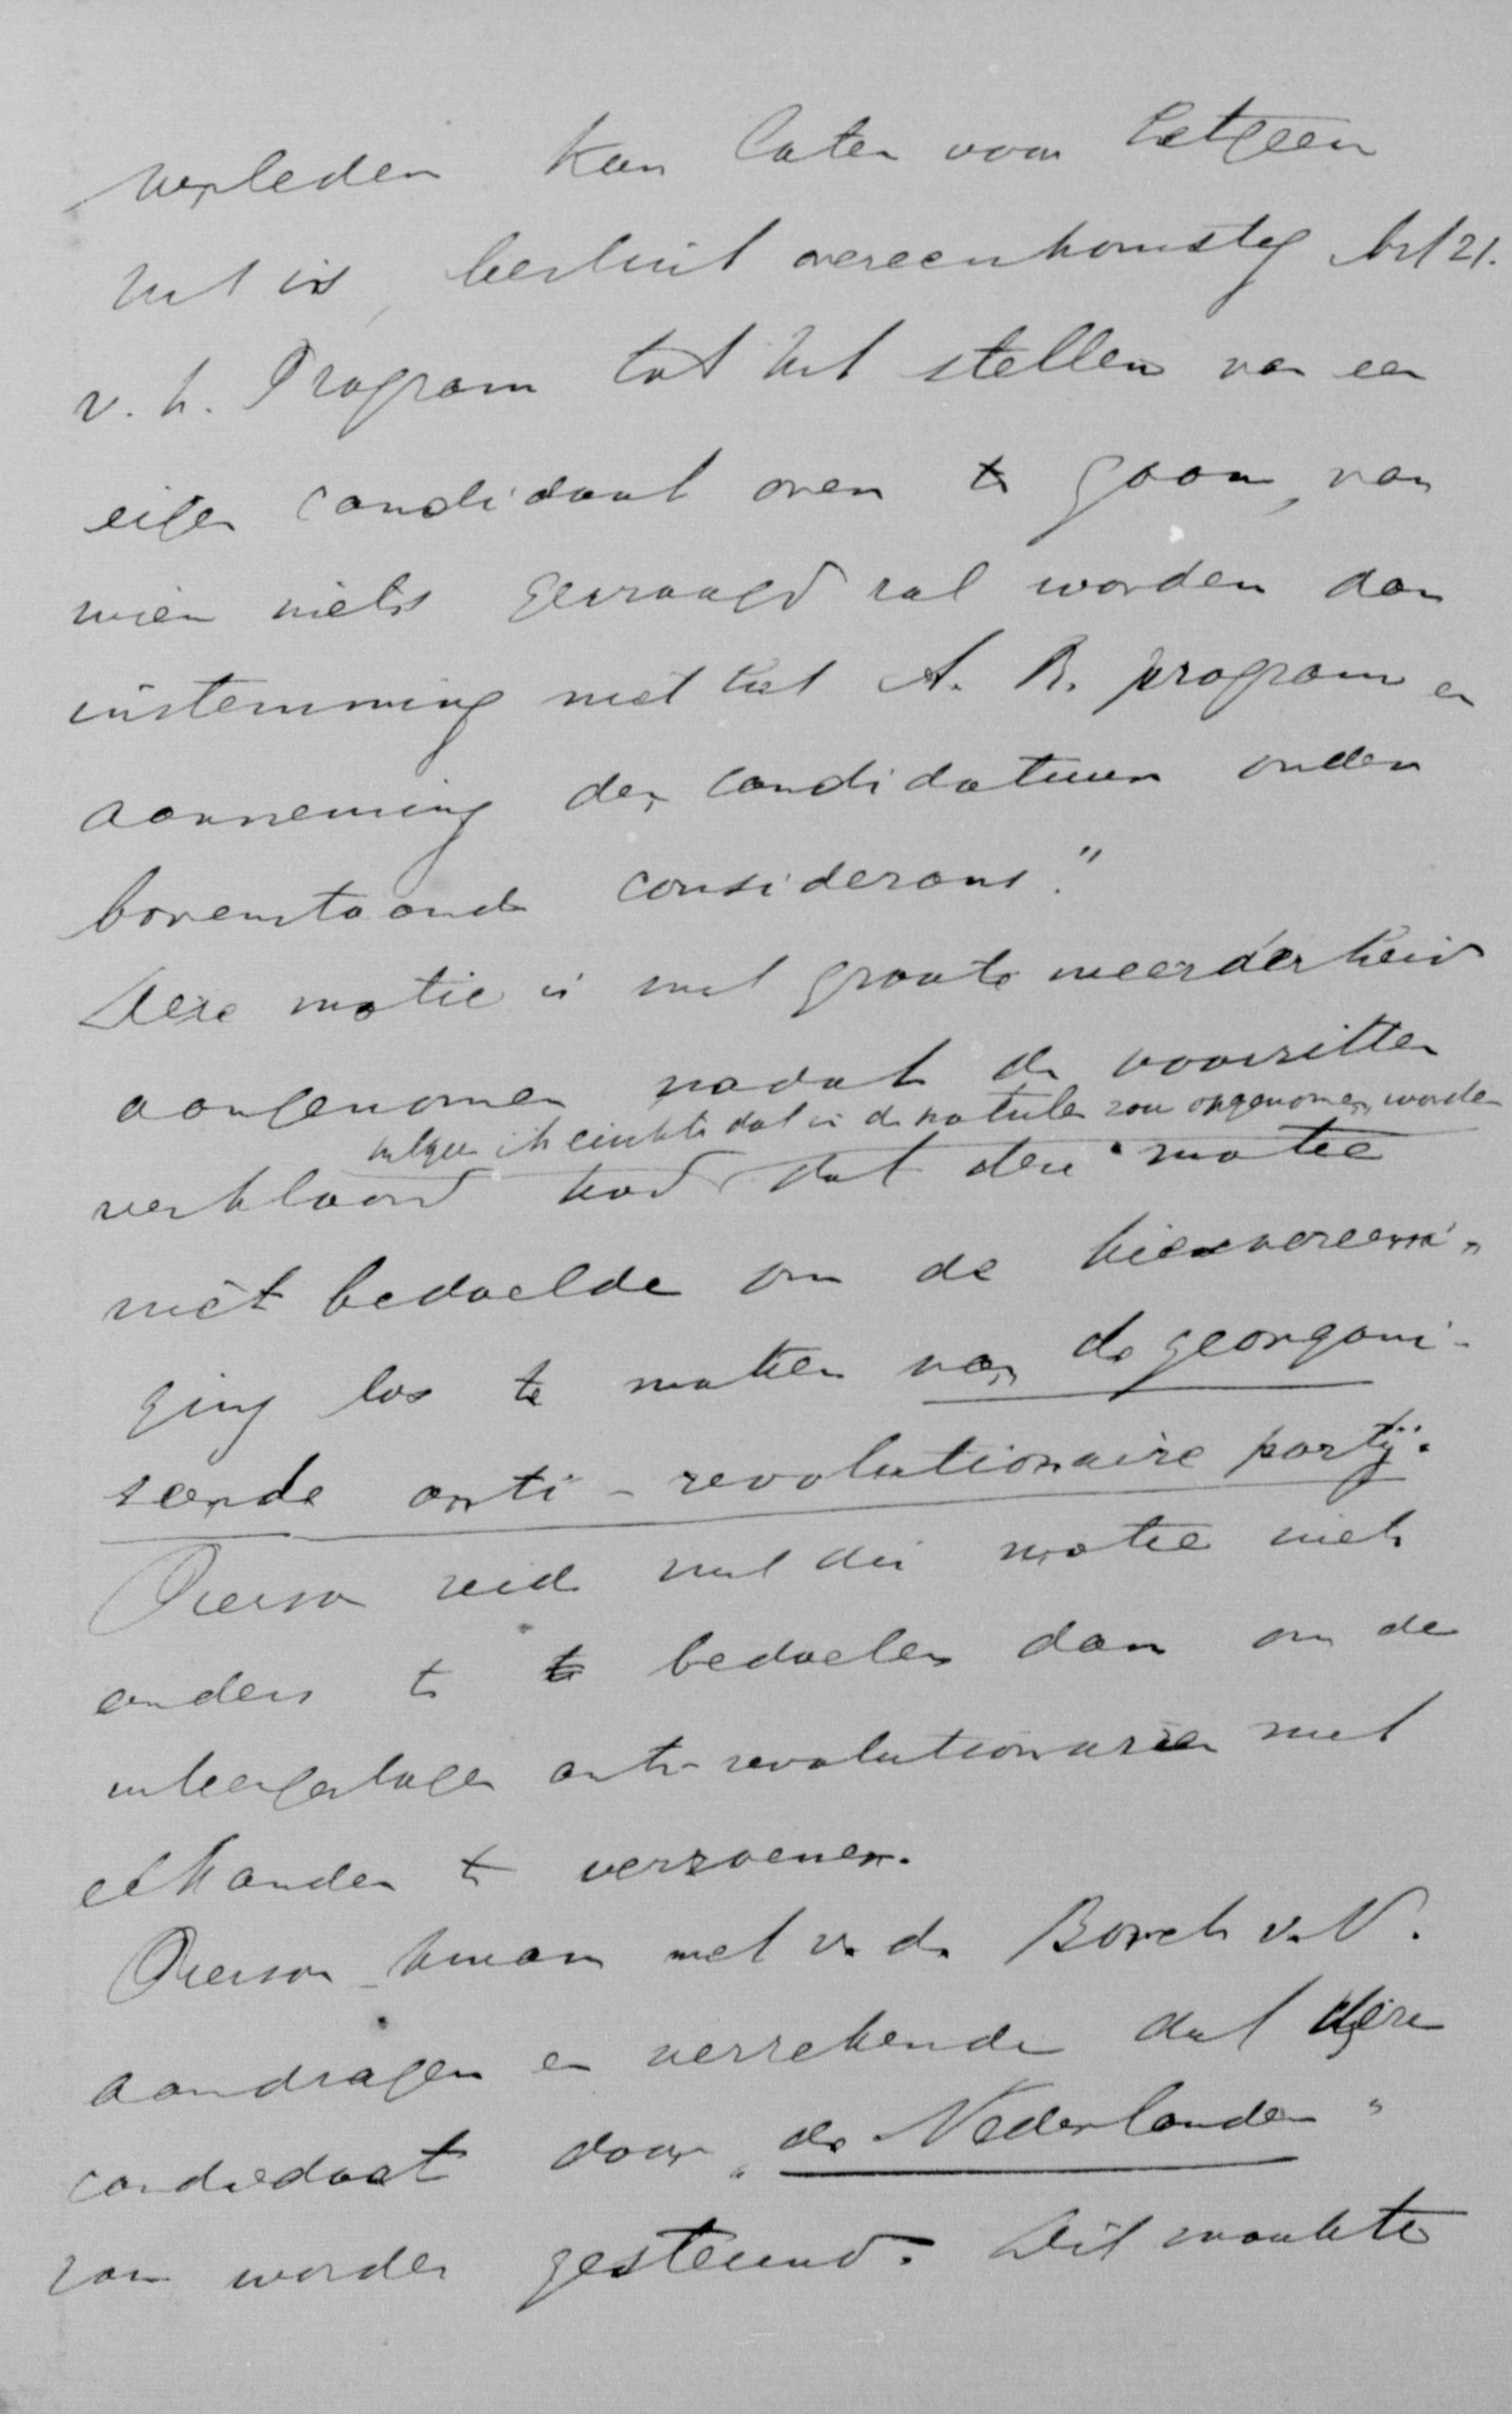 verleden kan laten voor hetgeen
het is, besluit overeenkomstig Art 21.
v. h. Program tot het stellen van een
eigen candidaat over te gaan, van
wien niets gevraagd zal worden dan
instemming met het A. R. program en
aanneming der candidatuur onder
bovenstaande considerans."
Deze motie is met groote meerderheid
aangenomen nadat de voorzitter
hetgeen ik eischte dat in de notulen zou opgenomen worden
verklaard had dat deze motie
niet bedoelde om de kiesvereeni„
ging los te maken van de georgani-
seerde anti-revolutionaire partij.
Pierson zeide met die motie niets
anders te bedoelen dan om de
uiteengeslagen anti-revolutionairen met
elkander te verzoenen.
Pierson kwam met v. d. Borch v. V.
aandragen en verzekerde dat deze
candidaat door „de Nederlander"
zou worden gesteund. Dit maakte